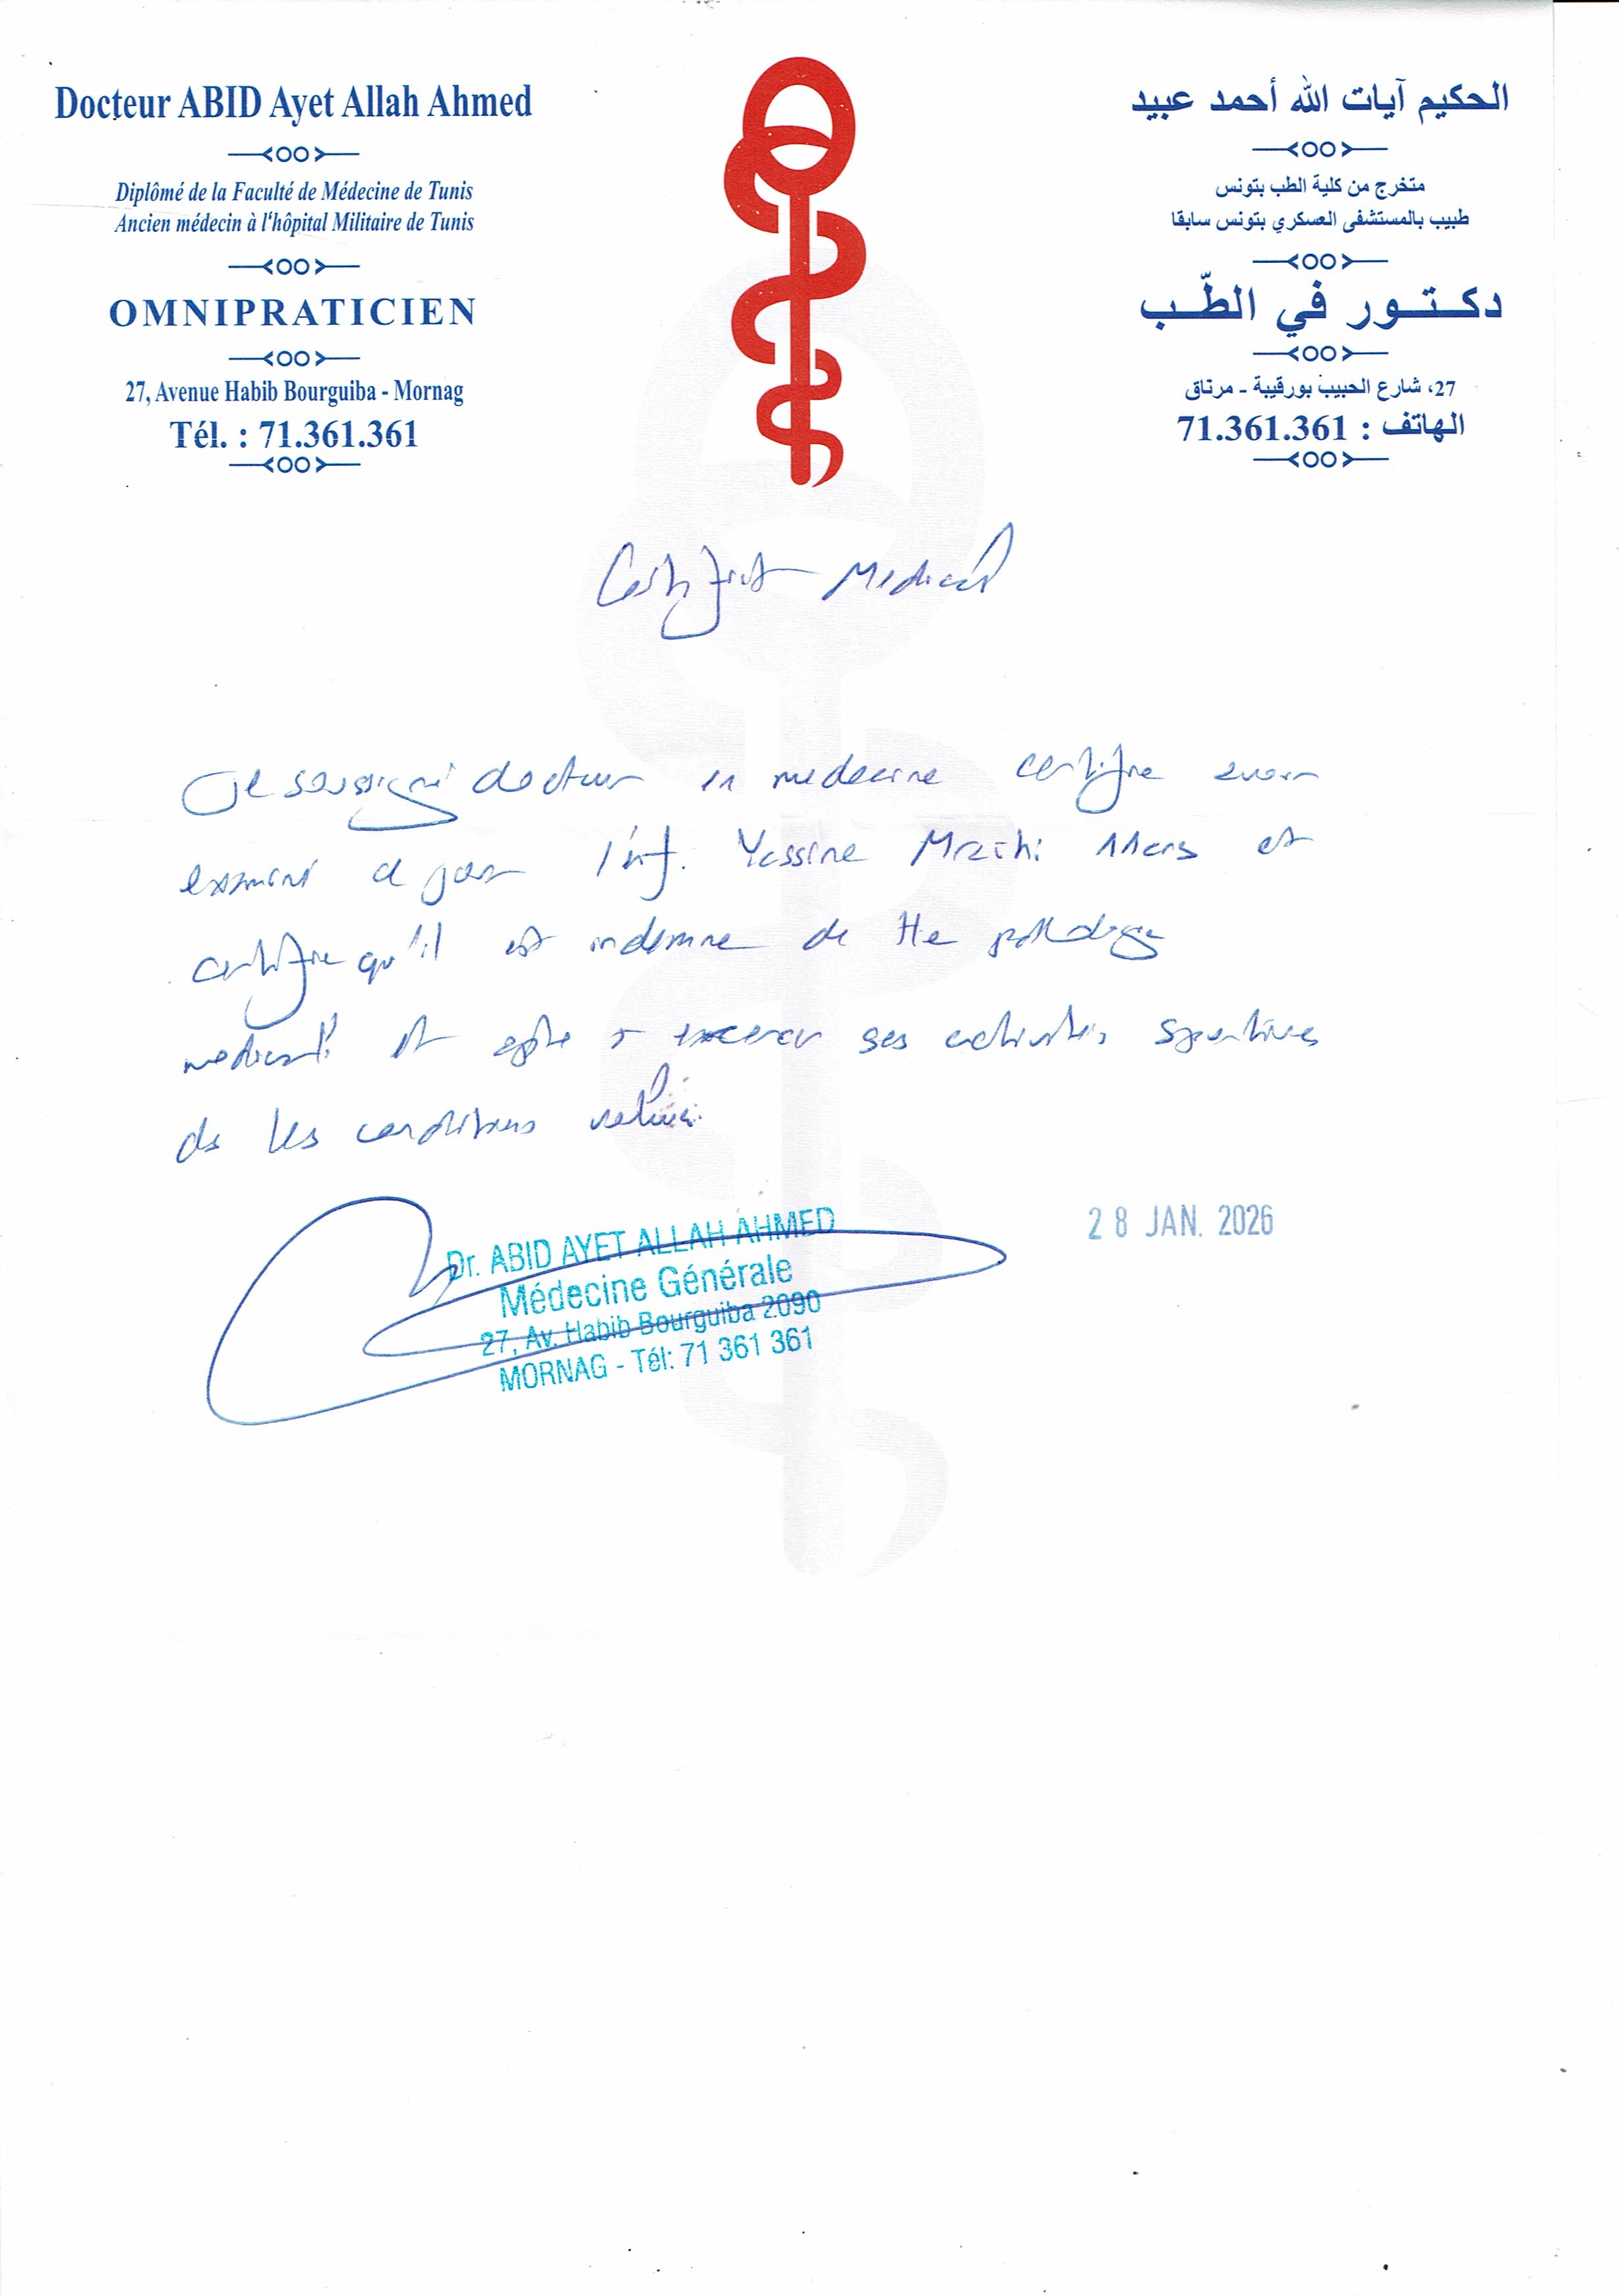 Docteur ABID Ayet Allah Ahmed
Diplômé de la Faculté de Médecine de Tunis
Ancien médecin à l'hôpital Militaire de Tunis
OMNIPRATICIEN
27, Avenue Habib Bourguiba - Mornag
Tél. : 71.361.361
الحكيم آيات الله أحمد عبيد
متخرج من كلية الطب بتونس
طبيب بالمستشفى العسكري بتونس سابقا
دكتور في الطّب
27، شارع الحبيب بورقيبة - مرناق
الهاتف : 71.361.361
Certificat Medical
Je soussigné docteur en medecine certifie avoir
examiné ce jour l'enf. Yassine 11ans et
certifie qu'il est indemne de tte pathologie
medicale et apte à excercer ses activités sportives
ds les conditions
Dr. ABID AYET ALLAH AHMED
Médecine Générale
27, Av. Habib Bourguiba 2090
MORNAG - Tél: 71 361 361
28 JAN. 2026